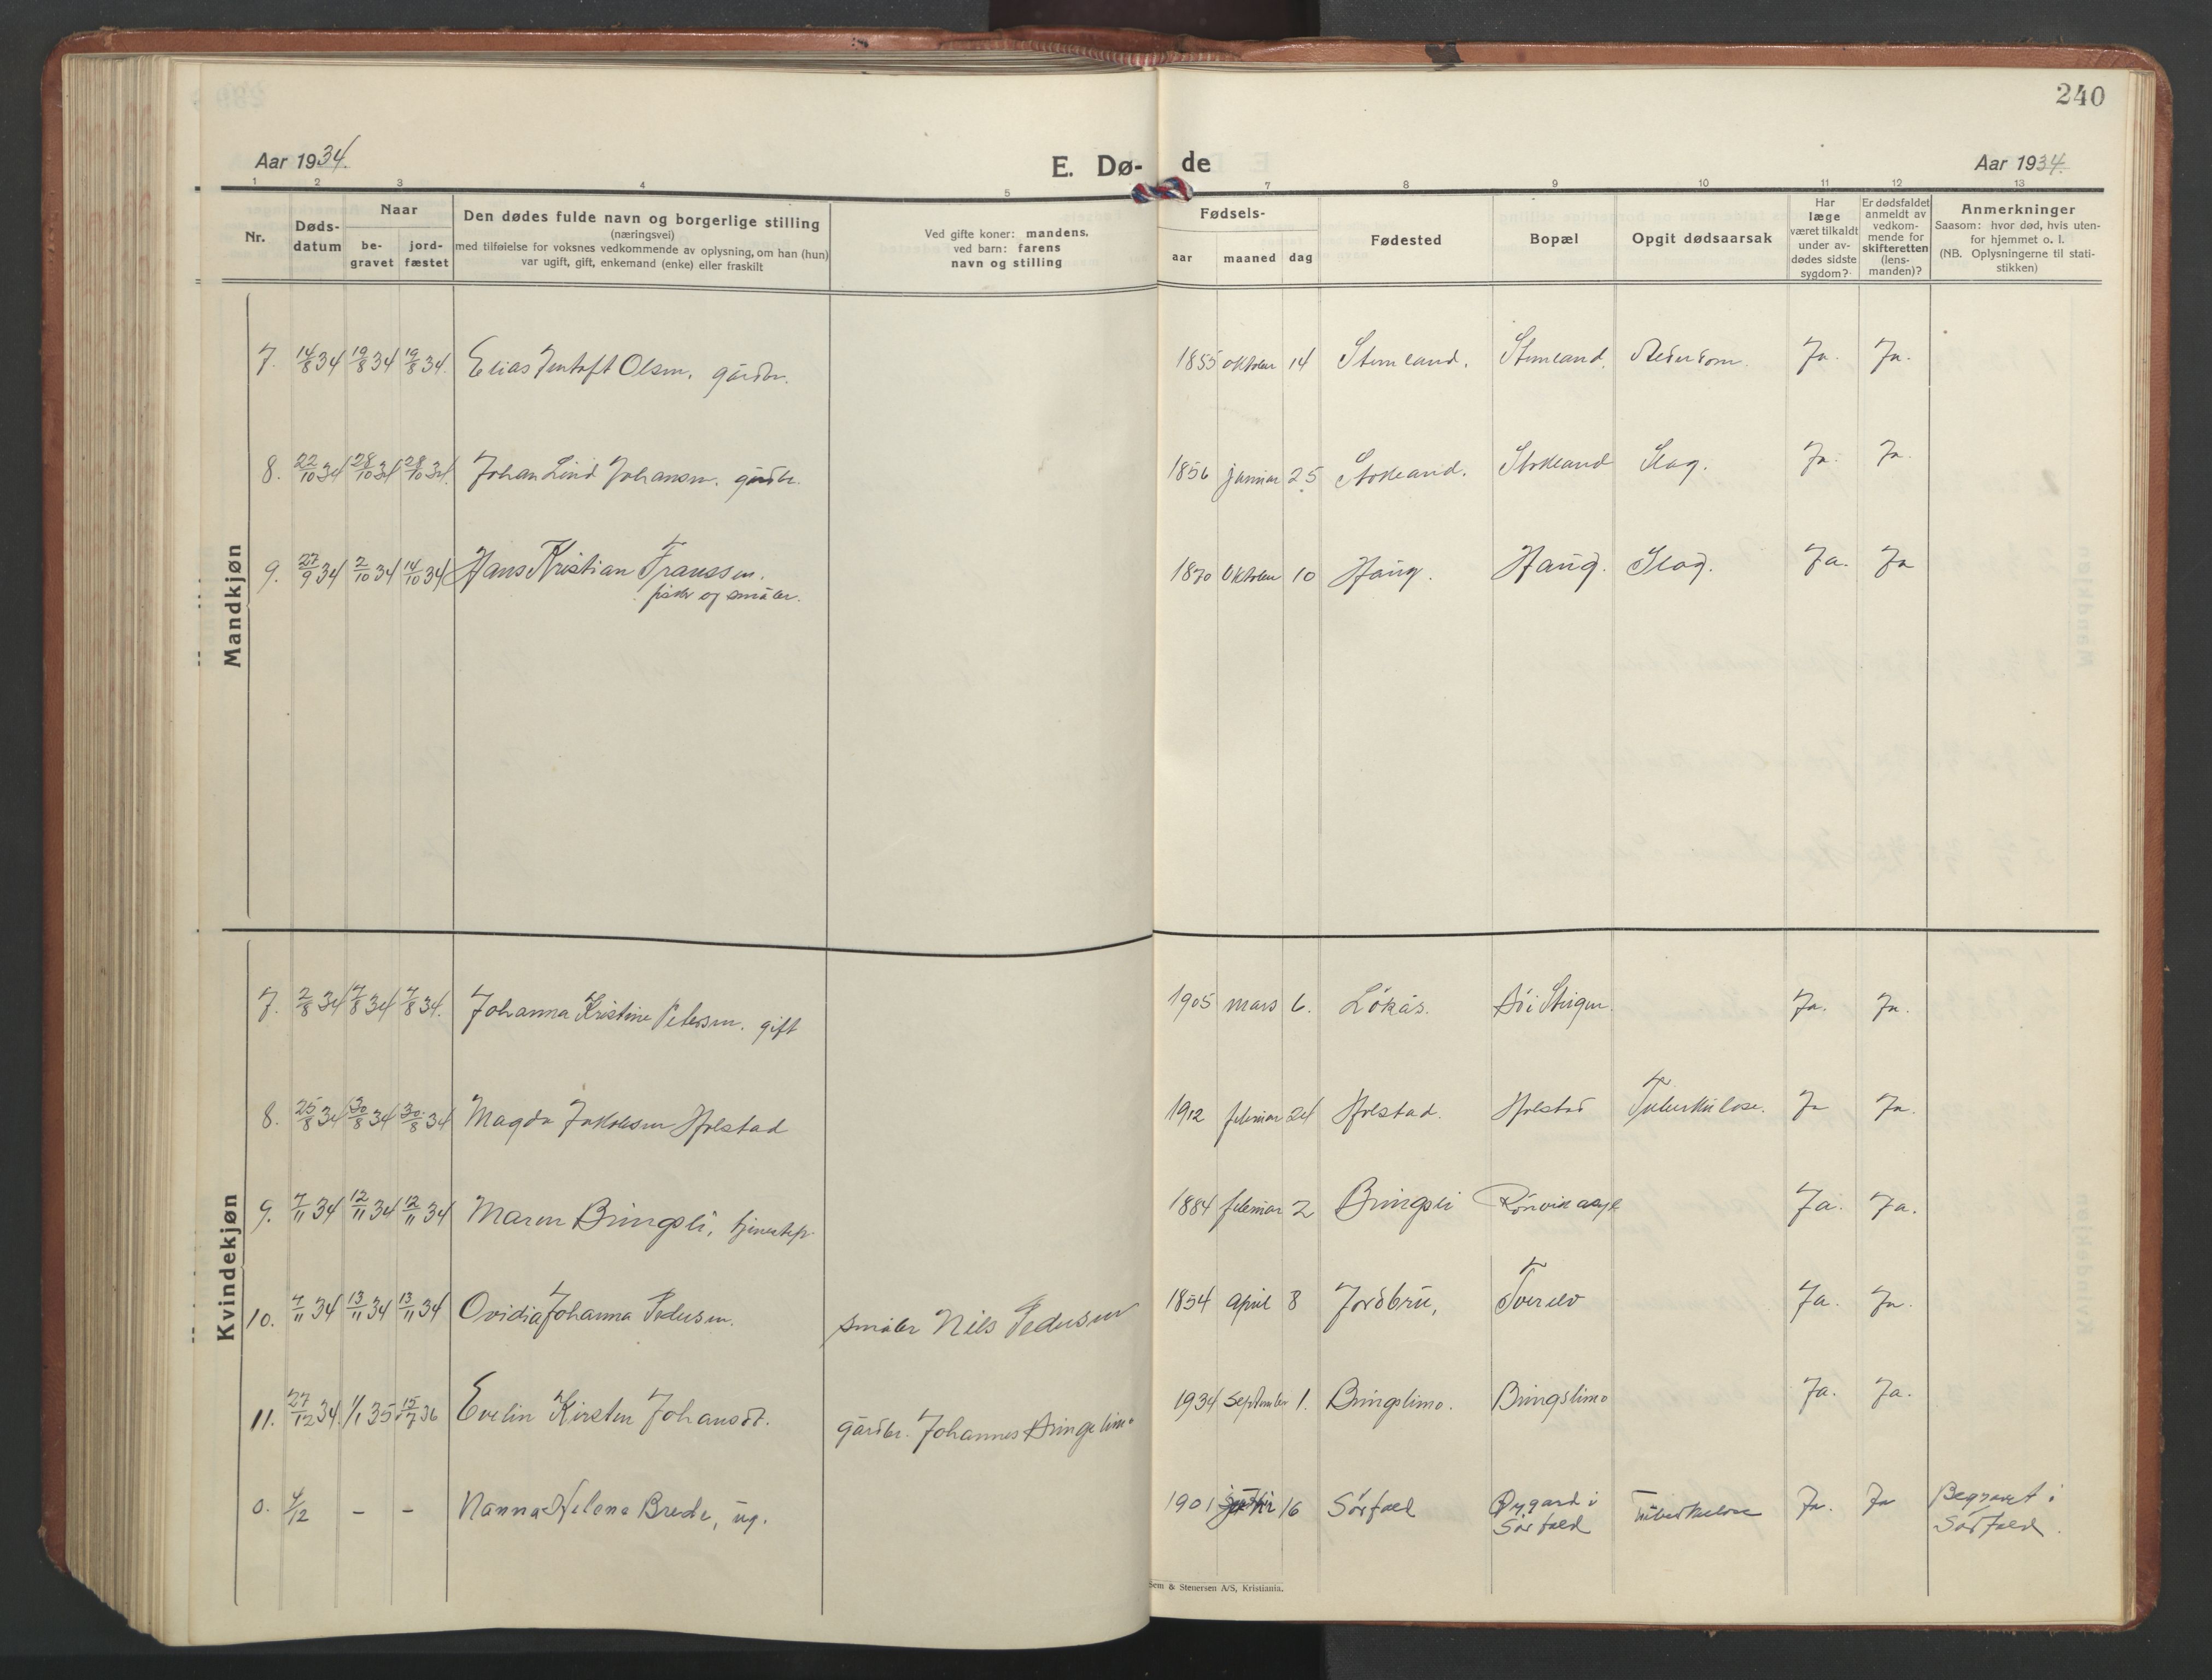 240
Aar 1934.
E. Dø-de
Aar 1934.
1 2 3 4 5 7 8 9 10 11 12 13
Nr.
Døds-datum
Naar
be-gravet
jord-fæstet
Den dødes fulde navn og borgerlige stilling
(næringsvei)
med tilføielse for voksnes vedkommende av oplysning, om han (hun)
var ugift, gift, enkemand (enke) eller fraskilt
Ved gifte koner: mandens,
ved barn: farens
navn og stilling
Fødsels-
aar maaned dag
Fødested
Bopæl
Opgit dødsaarsak
Har
læge
været tilkaldt
under av-
dødes sidste
sygdom?
Er dødsfaldet
anmeldt av
vedkom-
mende for
skifteretten
(lens-
manden)?
Anmerkninger
Saasom: hvor død, hvis uten-
for hjemmet o. l.
(NB. Oplysningerne til stati-
stikken)
Mandkjøn
7. 14/8 34 19/8 34 19/8 34. Elias Olsen. gårdbr. 1855 oktober 14 Ja. Ja.
8. 22/10 34 28/10 34 28/10 34. Johan Lind Johansen. gårdbr. 1856 januar 25 Slag. Ja. Ja.
9. 27/9 34 2/10 34 14/10 34 Hans Kristian Franssen. 1870 Oktober 10 Haug. Haug. Slag. Ja. Ja
fisker og småbr.
Kvindekjøn
7. 2/8 34 7/8 34 7/8 34. Johanna Kristine Petersen. gift 1905 mars 6. Løkås. Ja. Ja.
8. 25/8 34 30/8 34 30/8 34 Magda Jakobsen Holstad 1912 februar 24 Holstad. Holstad Tuberkulose. Ja Ja.
9. 7/11 34 12/11 34 12/11 34 Maren Bringsli, 1884 februar 2 Bringsli Ja. Ja.
10. 7/11 34 13/11 34 13/11 34 Ovidia Johanna Pedersen. småbr Nils Pedersen 1854 april 8 Jordbru, Tverelv Ja. Ja.
11. 27/12 34. 1/1 35 15/7 36 Evelin Kirsten Johansdt. gårdbr. Johannes Bringslimo 1934 September 1. Bringslimo. Bringslimo Ja. Ja.
0. 4/12 - - Nanna Helena Brede, ug. 1901 16 Sørfold Øygard i Sørfold Tuberkulose Ja. Ja Begravet i Sørfold.
Sem & Stenersen A/S, Kristiania.